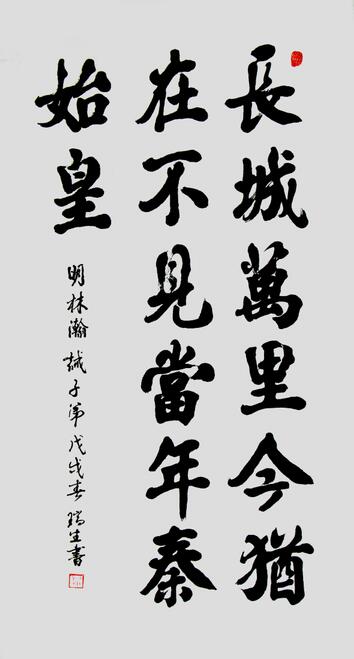 長城萬里今猶
在不見當年秦
始皇
明林瀚誡子弟戊戌春瑞生書